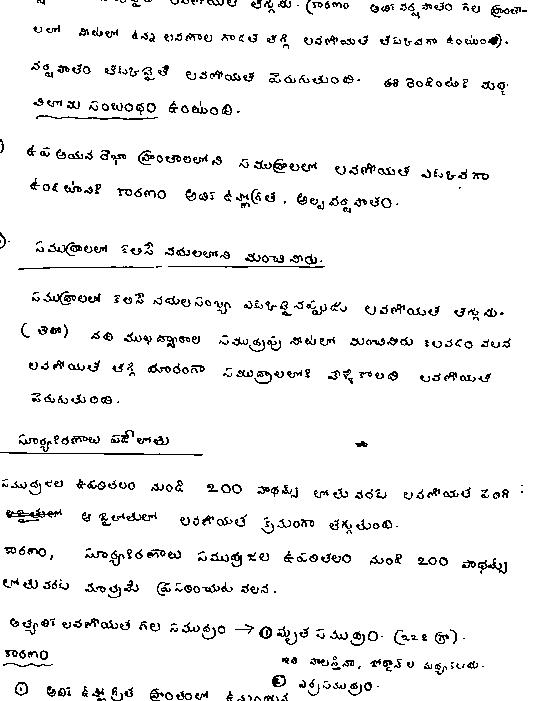 లవణీయత తగ్గును. (కారణం అధిక వర్షపాతం గల ప్రాంతా-
లలో నీటిలో ఉన్న లవణాల గాఢత తగ్గి లవణీయత తక్కువగా ఉంటుంది).
వర్షపాతం తక్కువైతే లవణీయత పెరుగుతుంది. ఈ రెండింటికి మధ్య
విలోమ సంబంధం ఉంటుంది.
ఉప ఆయన రేఖా ప్రాంతాలలోని సముద్రాలలో లవణీయత ఎక్కువగా
ఉండటానికి కారణం అధిక ఉష్ణోగ్రత, అల్ప వర్షపాతం.
సముద్రాలలో కలిసే నదులలోని మంచినీరు.
సముద్రాలలో కలిసే నదుల సంఖ్య ఎక్కువైనప్పుడు లవణీయత తగ్గును.
(లేదా) నదీ ముఖద్వారాల సముద్రపు నీటిలో మంచినీరు కలవడం వలన
లవణీయత తగ్గి దూరంగా సముద్రాలలోకి వెళ్ళే కొలది లవణీయత
పెరుగుతుంది.
సూర్యకిరణాలు పడే లోతు
సముద్రజల ఉపరితలం నుండి 200 ఫాథమ్స్ లోతు వరకు లవణీయత పెరిగి
ఆ పై లోతులో లవణీయత క్రమంగా తగ్గుతుంది.
కారణం, సూర్యకిరణాలు సముద్రజల ఉపరితలం నుండి 200 ఫాథమ్స్
లోతు వరకు మాత్రమే ప్రసరించుట వలన.
అత్యధిక లవణీయత గల సముద్రం → ① మృత సముద్రం. (228 గ్రా).
కారణం ఇది పాలస్తీనా, జోర్డాన్ ల మధ్య కలదు.
② ఎర్రసముద్రం.
① అధిక ఉష్ణోగ్రత ప్రాంతంలో ఉన్నందున